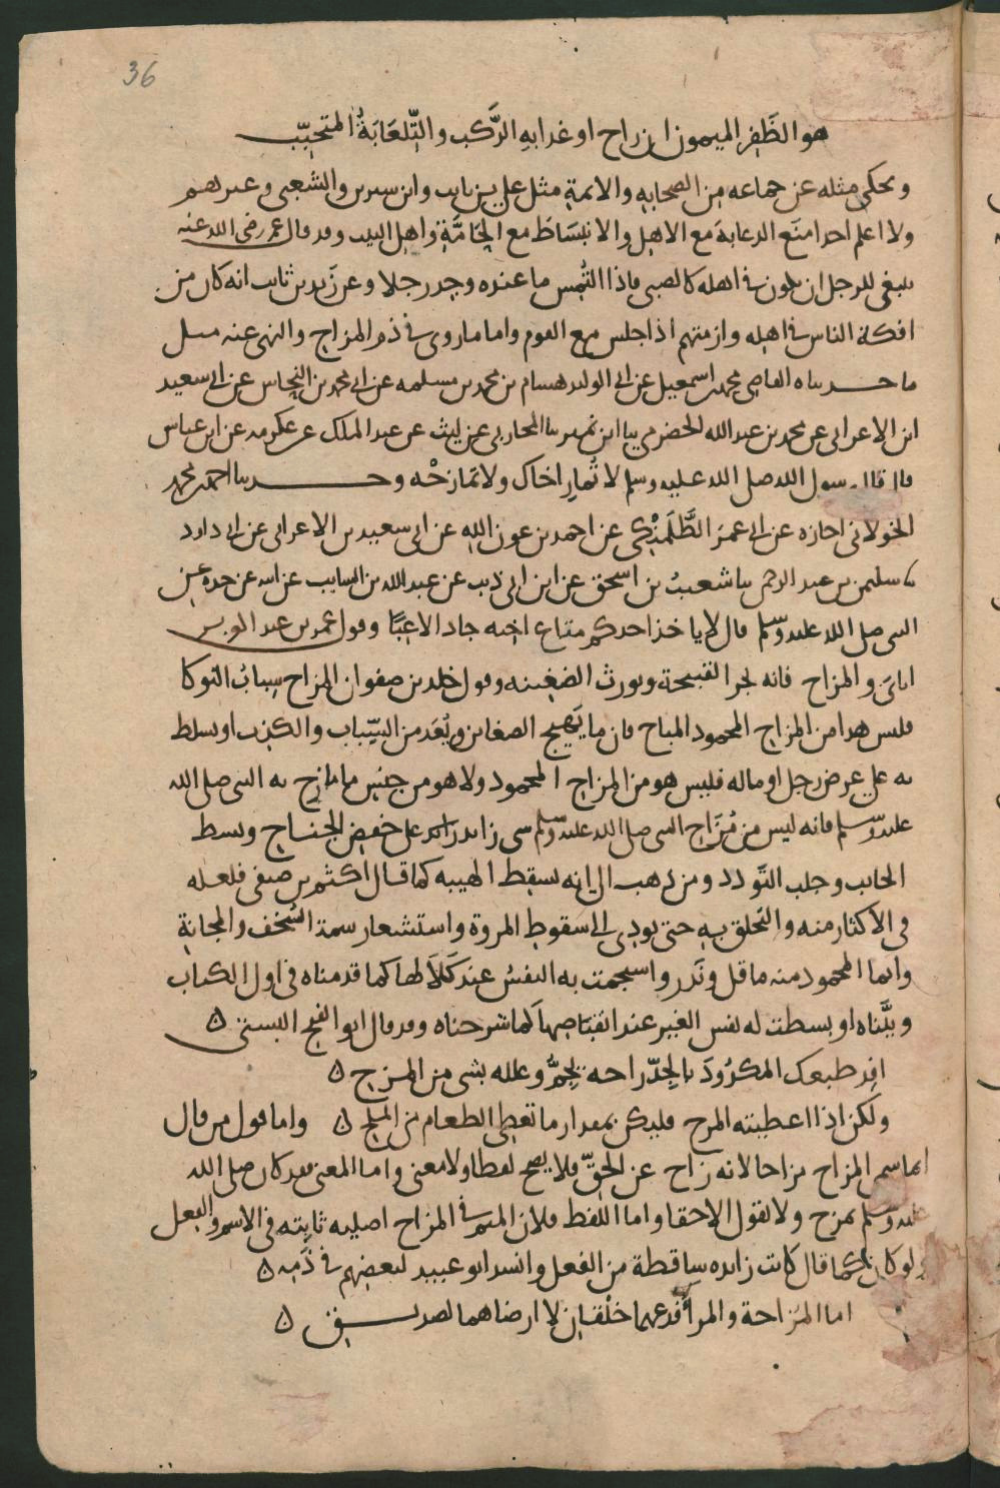 36
هو الظَفِر الميمون ان راح او غدا به الرَّكب والتِّلعَابَةُ المتحبِّب
ويحكى مثله عن جماعه من الصحابه والائمة مثل علي بن ثابت وابن سيرين والشعبي وغيرهم
ولا اعلم احدا منَع الدعابة مع الاهل والانبسَاطَ مع الحَامَّةِ واهل البيت وقد قال عمر رضى الله عنه
ينبغى للرجل ان يكون فى اهله كالصبى فاذا التُمس ما عنده وجد رجلا وعن زيد بن ثابت انه كان من
افكه الناس فى اهله وازمتهم اذا جلس مع القوم واما ما روى فى ذم المزاح والنهى عنه مثل
ما حدثناه القاضى محمد بن اسمعيل عن ابى الوليد هشام بن محمد بن مسلمه عن ابى محمد بن النحاس عن ابى سعيد
ابن الاعرابى عن محمد بن عبد الله الحضرمى نا ابن نمير نا المحاربى عن ليث عن عبد الملك عن عكرمه عن ابن عباس
قال قال رسول الله صلى الله عليه وسلم لا تُمارِ اخاك ولا تمازحْه وحدثنا احمد بن محمد
الخولانى اجازه عن ابى عمر الطَّلَمَنْكى عن احمد بن عون الله عن ابى سعيد بن الاعرابى عن ابى داود
نا سليمن بن عبد الرحمن نا شعيبُ بن اسحق عن ابن ابى ذيب عن عبد الله بن السايب عن ابيه عن جده عن
النبى صلى الله عليه وسلم قال لا ياخذ احدكم متاع اخيه جادا لاعِبًا وقول عمر بن عبد العزيز
اياىَ والمزاح فانه يجر القبيحة ويورث الضغينه وقول خلد بن صفوان المزاح سِبابُ النوكا
فليس هذا من المزاح المحمود المباح فان ما يَهيج الضغاين ويُعَد من السِّباب والكذب او يسلط
به على عرض رجل او ماله فليس هو من المزاح المحمود ولا هو من جنس ما مازح به النبى صلى الله
عليه وسلم فانه ليس من مُزَاح النبى صلى الله عليه وسلم شى زايد على خفض الجناح وبسط
الجانب وجلب التَودد ومن ذهب الى انه يسقِط الهيبه كما قال اكثم بن صيفى فلعله
فى الاكثار منه والتخلق به حتى يودى الى سقوط المروة واستشعار سمة السُخف والمجانة
وانما المحمود منه ما قل ونَدر واستجمت به النفسُ عند كَلاَلها كما قدمناه فى اول الكتاب
وبيَّناه او بسطت له نفس الغير عند انقباضِها كما شرحناه وقد قال ابو الفتح البستى ۞
افِد طبعك المكدُودَ بالجِدّ راحه يَجُمُّ وعلله بشى من المزح ۞
ولكن اذا اعطيته المزح فليكن بمقدار ما تعطى الطعام من الملح ۞ واما قول من قال
انما سمى المزاح مزاحا لانه زاح عن الحَقّ فلا يصح لفظا ولا معنى واما المعنى فقد كان صلى الله
عليه وسلم يمزح ولا يقول الا حقا واما اللفظ فلان الميم فى المزاح اصليه ثابته فى الاسم والفعل
ولو كان كما قال كانت زايده ساقطة من الفعل وانشد ابو عبيد لبعضهم فى ذَمِه ۞
اما المزاحة والمراُ فدعهما خلْقان لا ارضاهما لصديق ۞